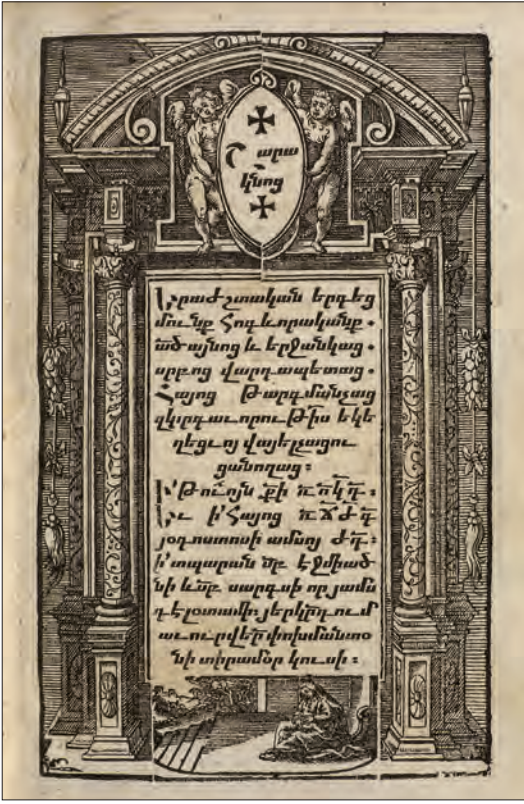 Շարա
կնոց
Երաժշտական երգեց
մունք Հոգևորականք.
ած այնոց և երջանկաց.
սրբոց վարդապետաց.
Հայոց Թարգմանչաց
զկարգաւորութիս եկե
ղեցւոյ վայելչացու
ցանողաց:
Ի՛ Թուոյն քի ռոկդ:
Եւ ի՛ Հայոց ռճժգ
յօգոստոսի ամսոյ ժգ:
ի՛ տպարան սբ էջմիած
նի և սբ սարգսի որ յամս
դէլօտամի: յերկրդում
աւուր վերփոխման տօ
նի տիրամօր կուսի: